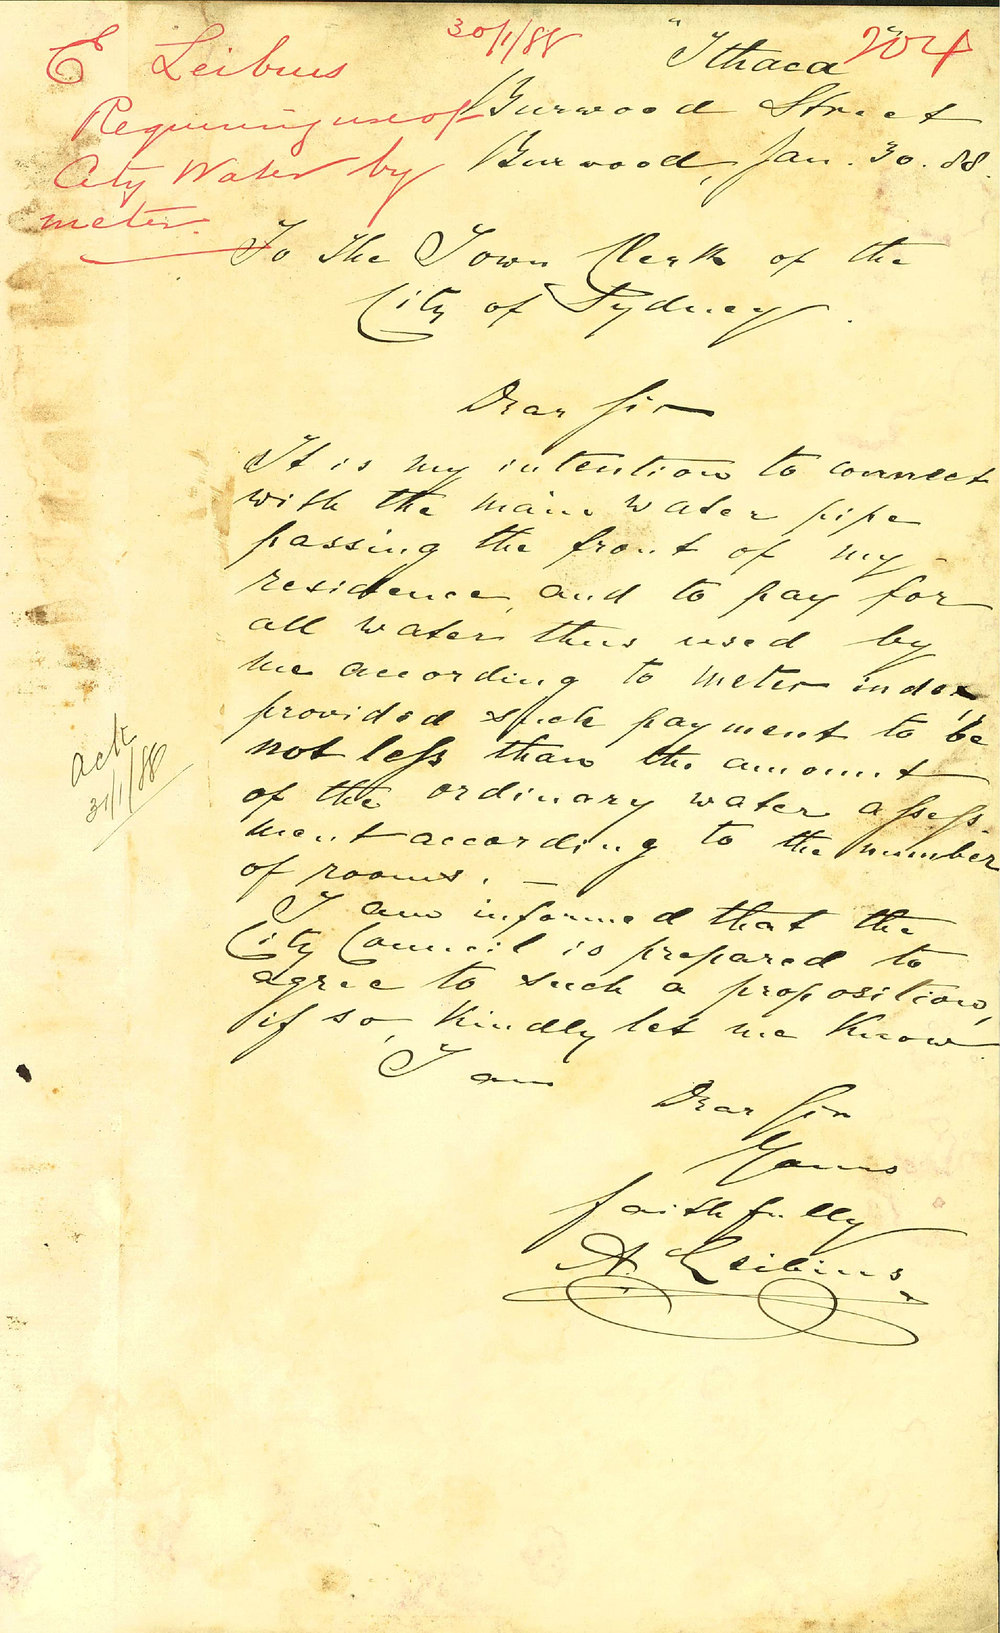 30/1/88
204
E Leibius
Requiring use of
City Water by
meter.
"Ithaca"
Burwood Street
Burwood, Jan. 30. 88.
To the Town Clerk of the
City of Sydney.
Dear Sir
It is my intention to connect
with the main water pipe
passing the front of my
residence, and to pay for
all water thus used by
me according to meter index,
provided such payment to be
not less than the amount
of the ordinary water assess-
ment according to the number
of rooms. —
I am informed that the
City Council is prepared to
agree to such a proposition,
if so, kindly let me know
I am
Dear Sir
Yours
faithfully
A. Leibius
ack
31/1/88